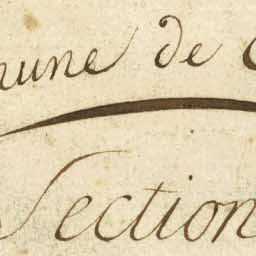 mune de C
Section